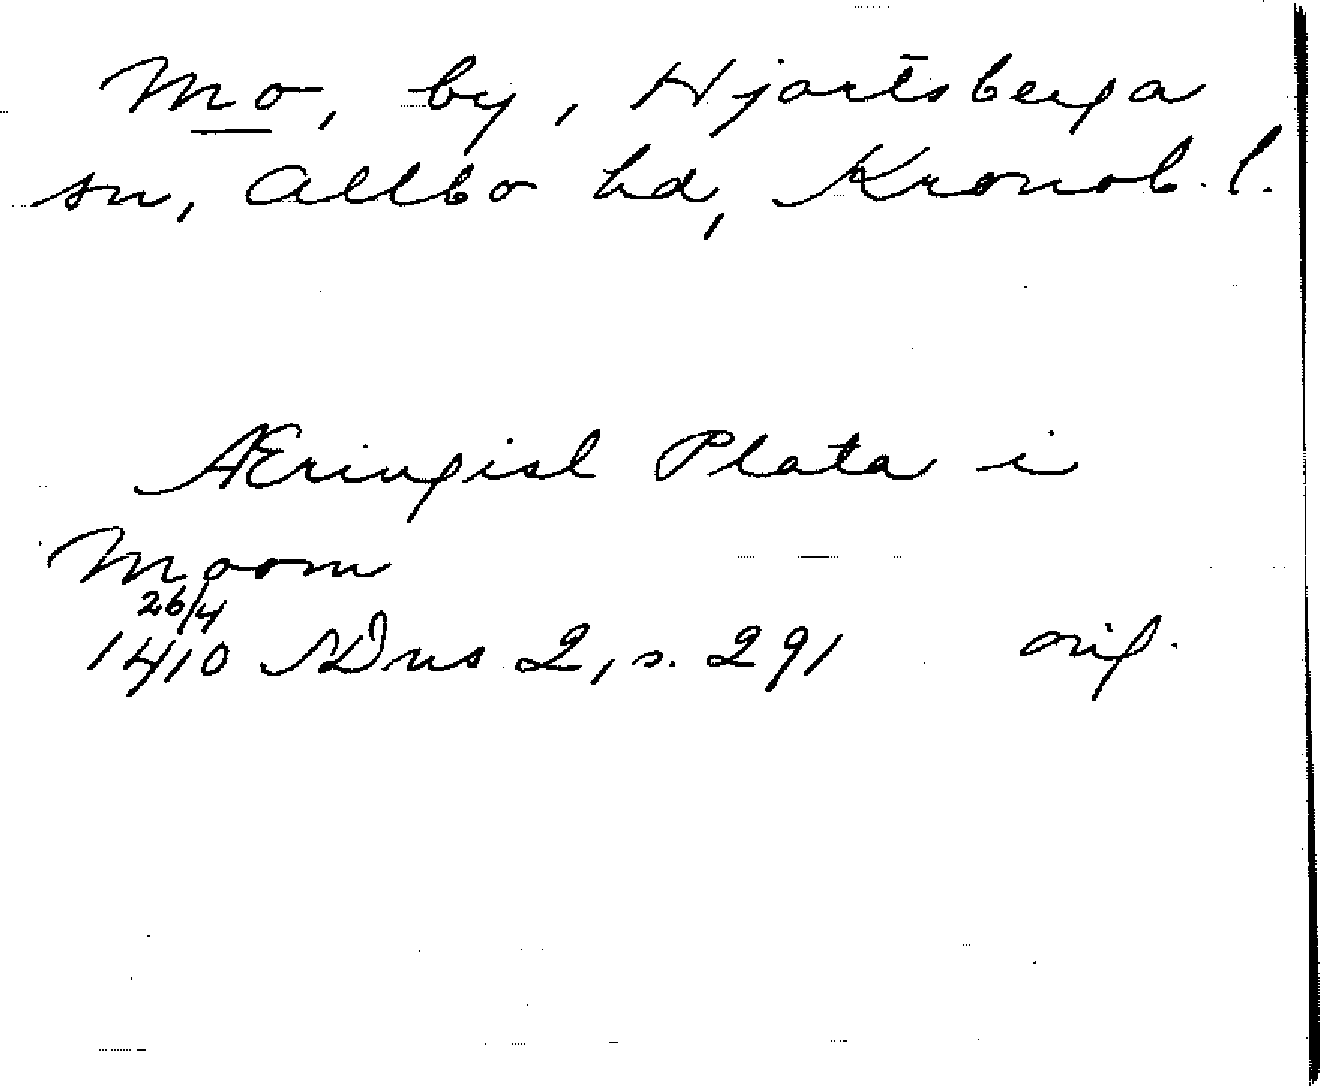 Mo, by, Hjortsberga
sn, Allbo hd, Kronob. l.
Æringisl Plata i
Moom
26/4
1410 SDns 2, s. 291 orig.